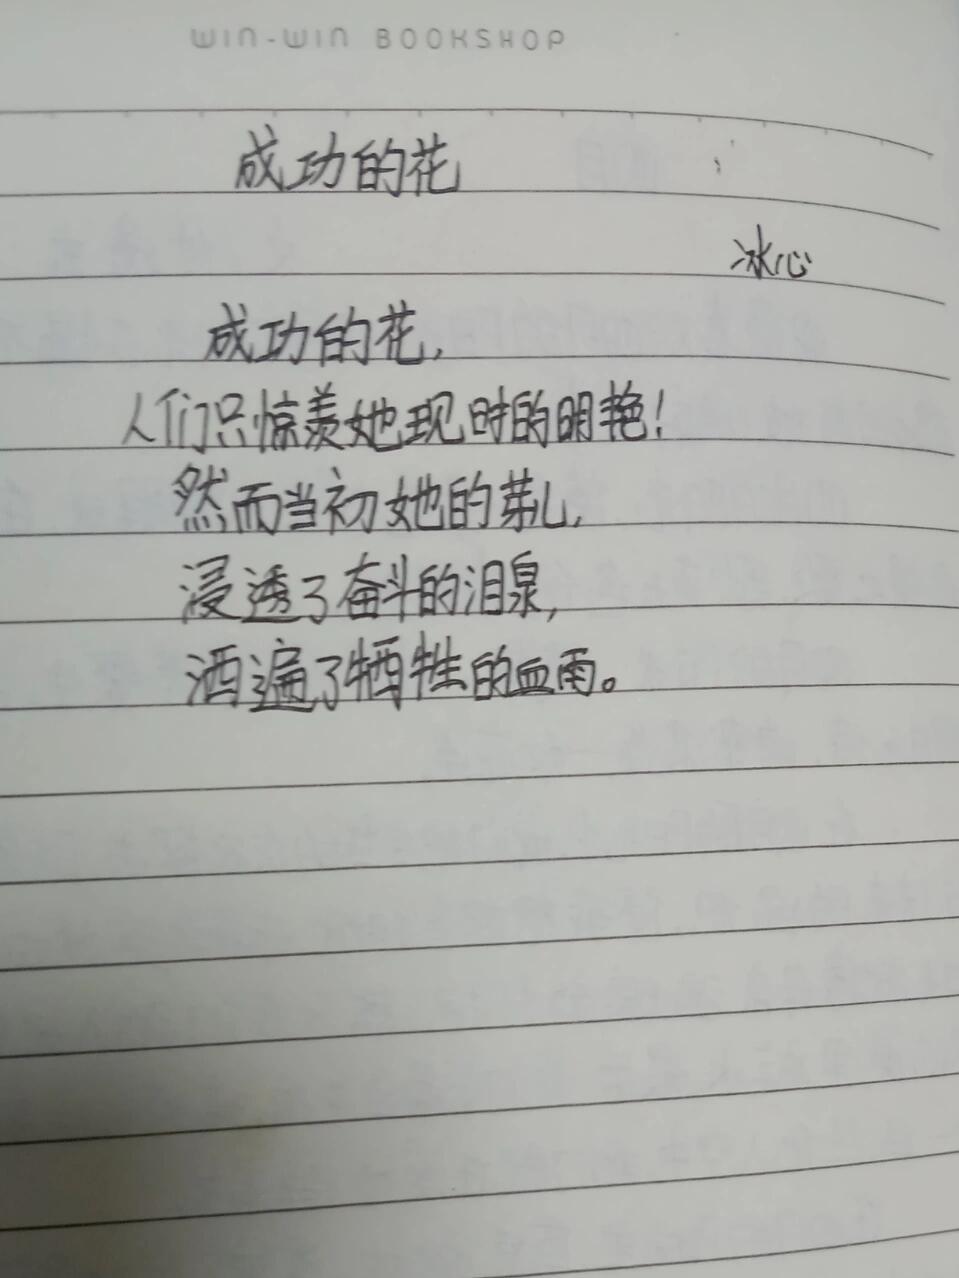 WIN-WIN BOOKSHOP
成功的花
冰心
成功的花,
人们只惊羡她现时的明艳!
然而当初她的芽儿,
浸透了奋斗的泪泉,
洒遍了牺牲的血雨。